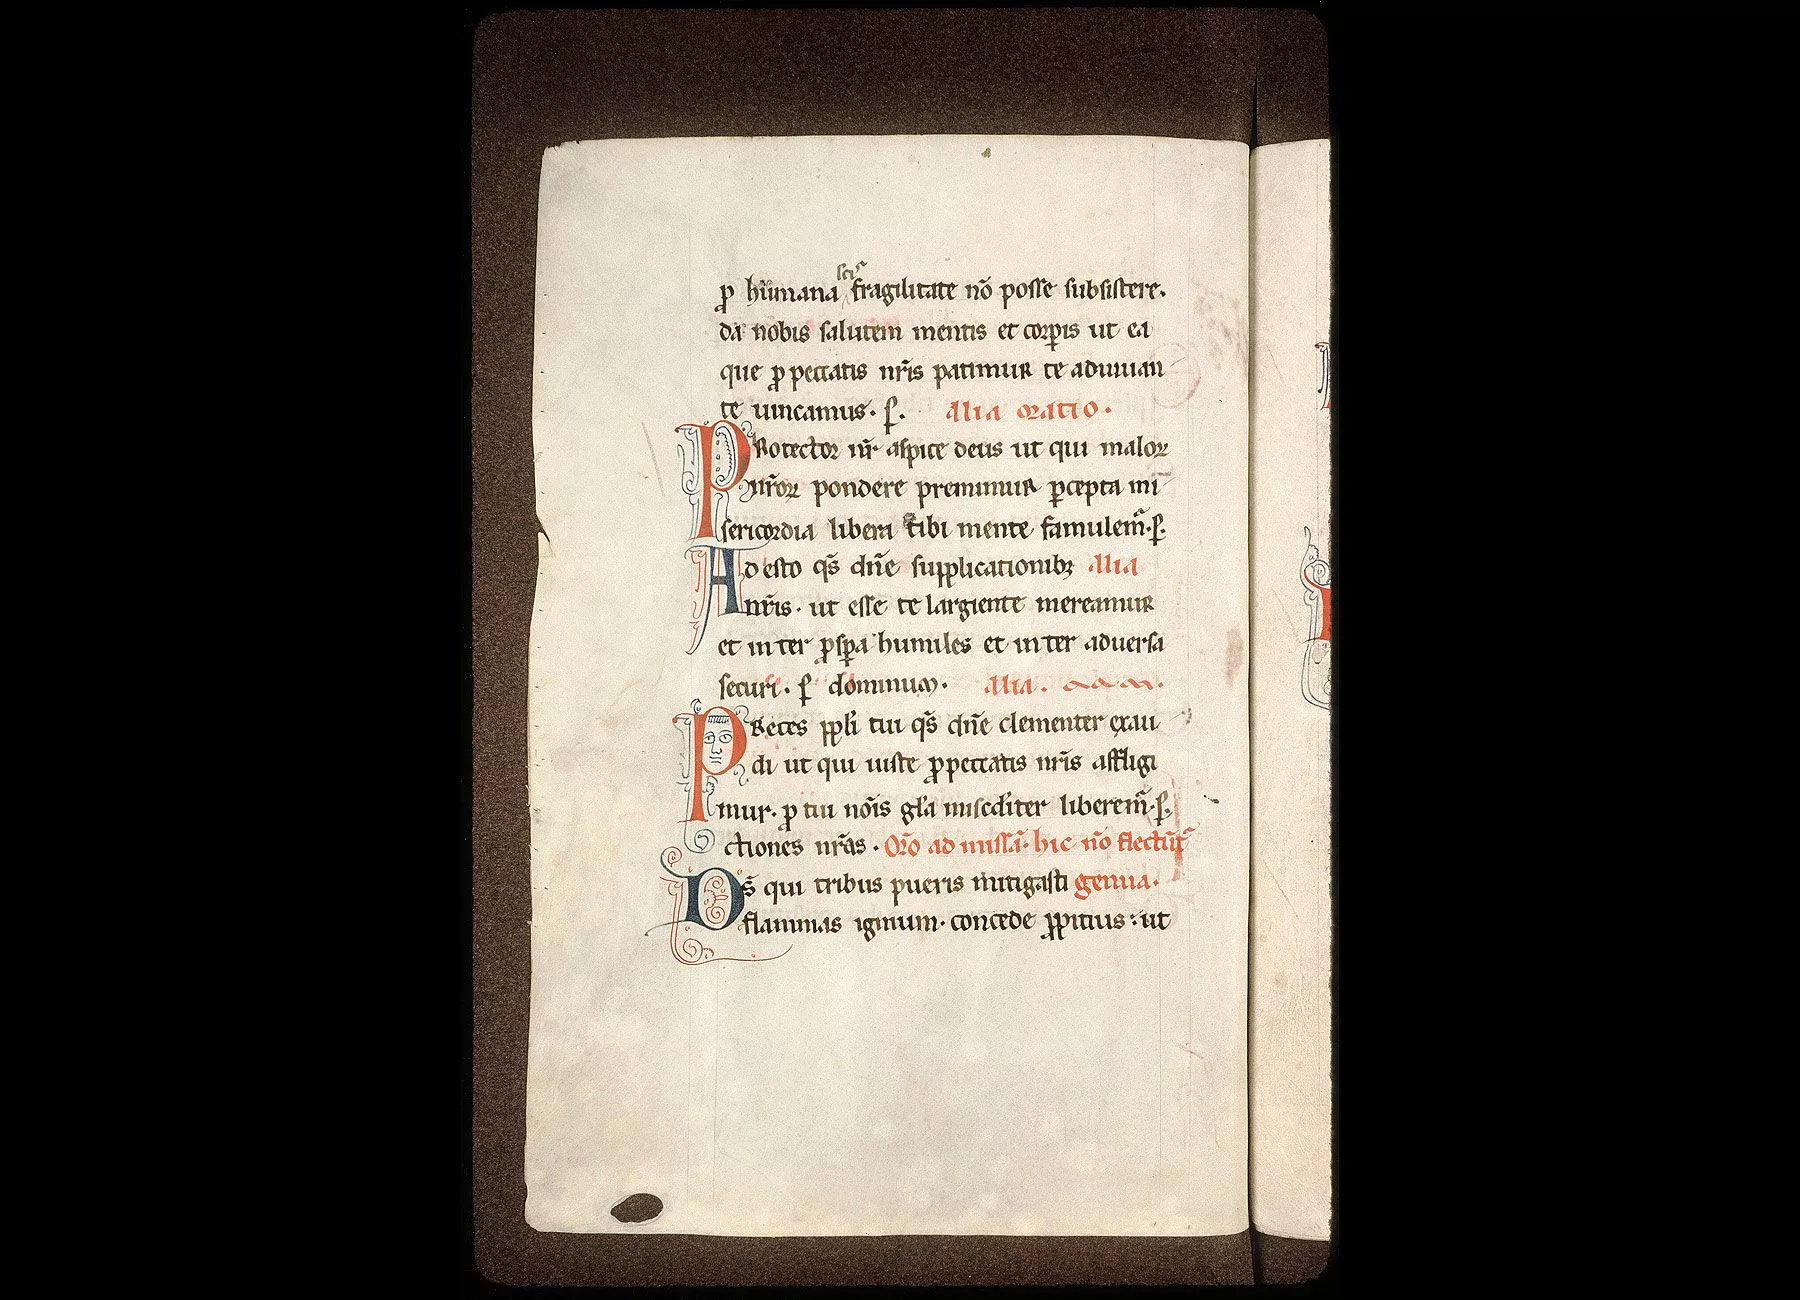 scīs
ꝓ humana fragilitate nō posse subsistere.
da nobis salutem mentis et corꝑis ut ea
que ꝓ peccatis nr̄is patimur te adiuuan
te uincamus. ꝑ. Alia oratio.
Protector nr̄ aspice deus ut qui maloꝝ
nr̄oꝝ pondere premimur ꝑcepta mi
sericordia libera tibi mente famulem̄. ꝑ.
Adesto qs̄ dn̄e supplicationibꝫ Alia
nr̄is. ut esse te largiente mereamur
et inter ꝓsꝑa humiles et inter aduersa
securi. ꝑ dominum. Alia.
Preces ppl̄i tui qs̄ dn̄e clementer exau
di ut qui iuste ꝓ peccatis nr̄is affligi
mur. ꝓ tui nōis gl̄a misedit̄er liberem̄. ꝑ.
ctiones nr̄as. Or̄o ad missā. hic nō flectūt̄
Ds̄ qui tribus pueris mitigasti genua.
flammas ignium. concede ꝓpitius: ut